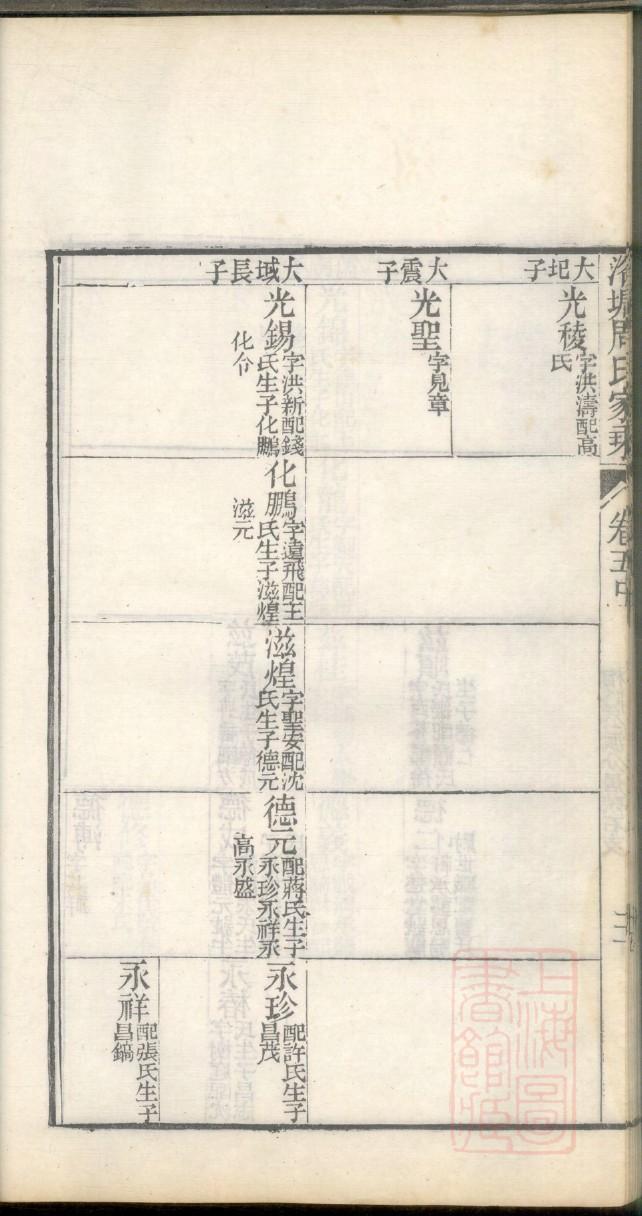 周氏家乘
卷五中
大圯子
光稜字洪濤配高
氏
大震子
光聖字見章
大域長子
光錫字洪新配錢
氏生子化鵬
化令
化鵬字遠飛配王
氏生子滋煌
滋元
滋煌字聖安配沈
氏生子德元
德元配蔣氏生子
永珍永祥永
高永盛
永珍配許氏生子
昌茂
永祥配張氏生子
昌鎬
上海圖
書館藏